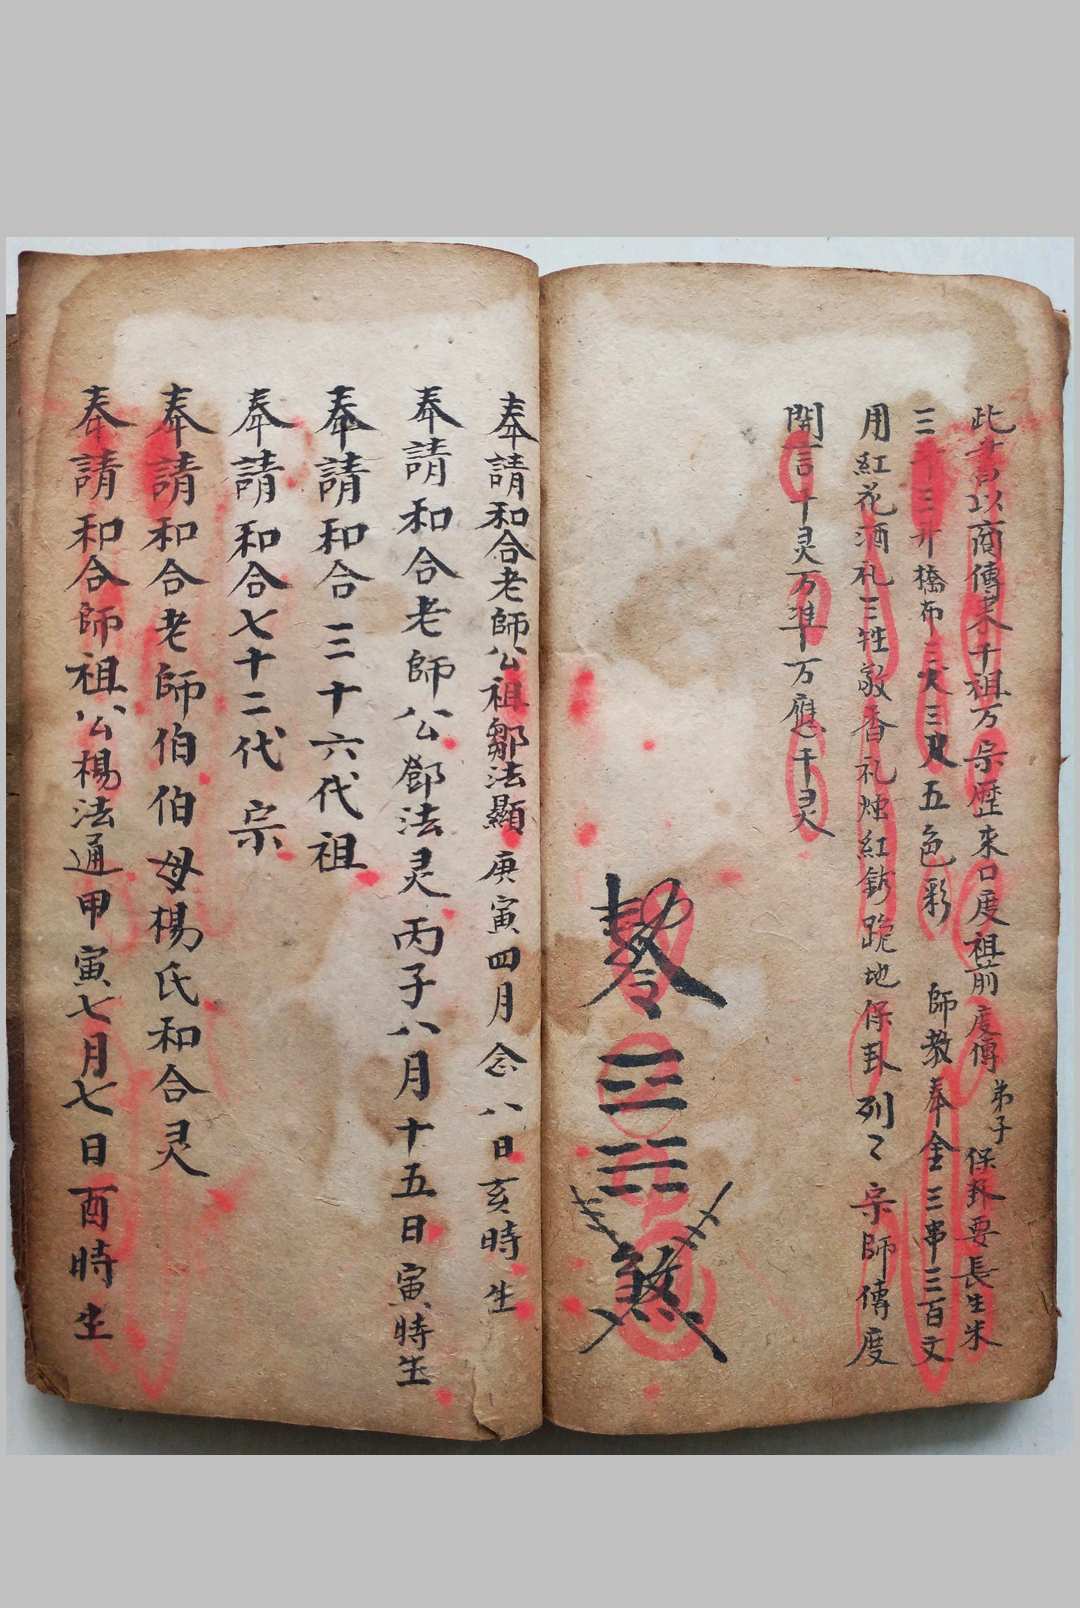 此書以商傳來千祖万宗歷來口度祖前度傳弟子保卦要長生米
三十三升橋布三丈三尺五色彩 師教奉金三串三百文
用紅花酒礼三牲敬香礼烛紅 跪地保卦列〻宗師傳度
開言千灵万準万應千灵
奉請和合老師公祖鄒法顯庚寅四月念八日亥時生
奉請和合老師公鄧法灵丙子八月十五日寅時生
奉請和合三十六代祖
奉請和合七十二代宗
奉請和合老師伯伯母楊氏和合灵
奉請和合師祖公楊法通甲寅七月七日酉時生